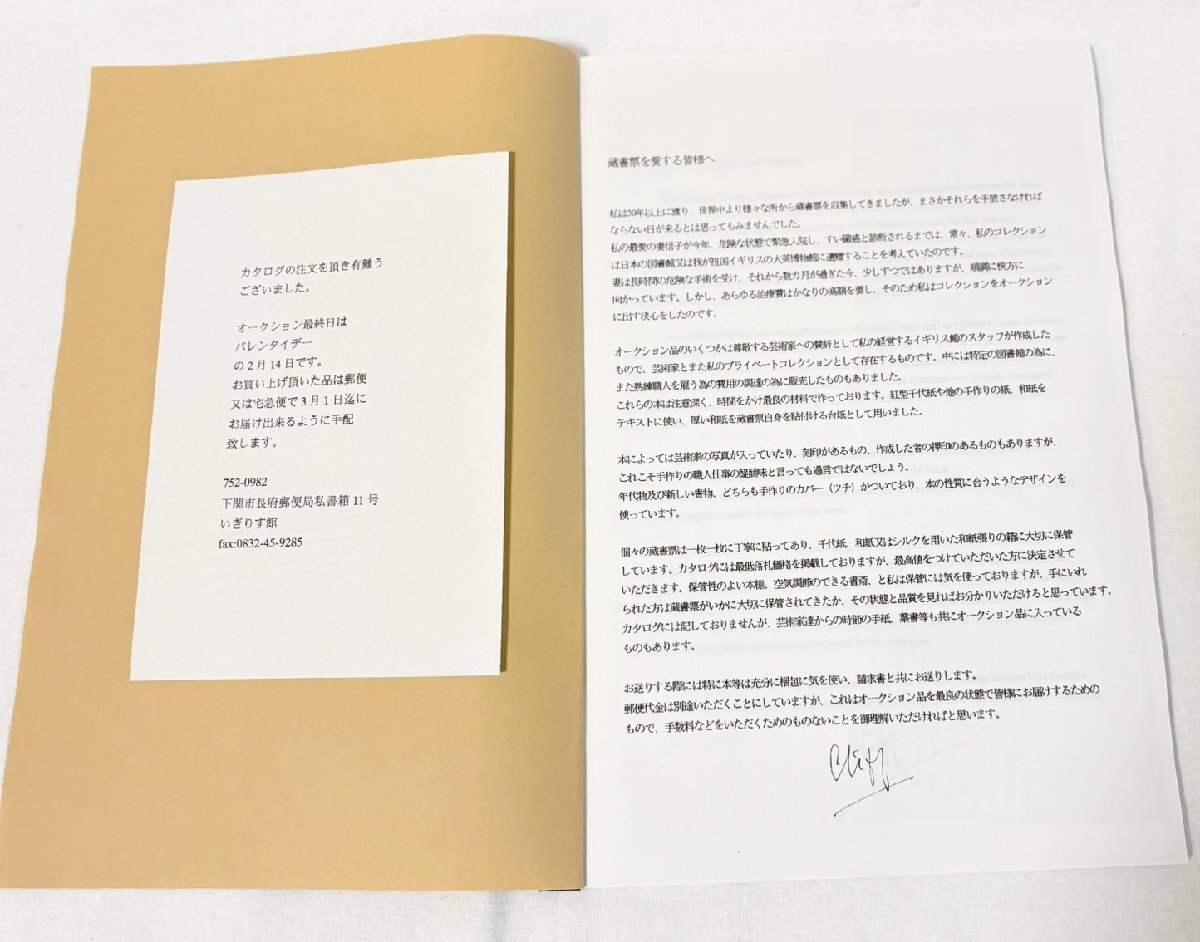 カタログの注文を頂き有難う
ございました。
オークション最終日は
バレンタイデー
の2月14日です。
お買い上げ頂いた品は郵便
又は宅急便で3月1日迄に
お届け出来るように手配
致します。
752-0982
下関市長府郵便局私書箱11号
いぎりす館
fax:0832-45-9285
蔵書票を愛する皆様へ
私は30年以上に渡り、世界中より様々な所から蔵書票を収集してきましたが、まさかそれらを手放さなければ
ならない日が来るとは思ってもみませんでした。
私の最愛の妻信子が今年、危険な状態で緊急入院し、すい臓癌と診断されるまでは、常々、私のコレクション
は日本の図書館又は我が祖国イギリスの大英博物館に遺贈することを考えていたのです。
妻は長時間の危険な手術を受け、それから数カ月が過ぎた今、少しずつではありますが、順調に快方に
向かっています。しかし、あらゆる治療費はかなりの高額を要し、そのため私はコレクションをオークション
に出す決心をしたのです。
オークション品のいくつかは尊敬する芸術家への賛辞として私の経営するイギリス館のスタッフが作成した
もので、芸術家とまた私のプライベートコレクションとして存在するものです。中には特定の図書館の為に、
また熟練職人を雇う為の費用の調達の為に販売したものもありました。
これらの本は注意深く、時間をかけ最良の材料で作っております。紅型千代紙や他の手作りの紙、和紙を
テキストに使い、厚い和紙を蔵書票自身を貼付ける台紙として用いました。
本によっては芸術家の写真が入っていたり、刻印があるもの、作成した者の押印のあるものもありますが、
これこそ手作りの職人仕事の醍醐味と言っても過言ではないでしょう。
年代物及び新しい書物、どちらも手作りのカバー（ツチ）がついており、本の性質に合うようなデザインを
使っています。
個々の蔵書票は一枚一枚に丁寧に貼ってあり、千代紙、和紙又はシルクを用いた和紙張りの箱に大切に保管
しています。カタログには最低落札価格を掲載しておりますが、最高値をつけていただいた方に決定させて
いただきます。保管性のよい本棚、空気調節のできる書斎、と私は保管には気を使っておりますが、手にいれ
られた方は蔵書票がいかに大切に保管されてきたか、その状態と品質を見ればお分かりいただけると思っています。
カタログには記しておりませんが、芸術家達からの時節の手紙、葉書等も共にオークション品に入っている
ものもあります。
お送りする際には特に本等は充分に梱包に気を使い、請求書と共にお送りします。
郵便代金は別途いただくことにしていますが、これはオークション品を最良の状態で皆様にお届けするための
もので、手数料などをいただくためのものないことを御理解いただければと思います。
Cliff